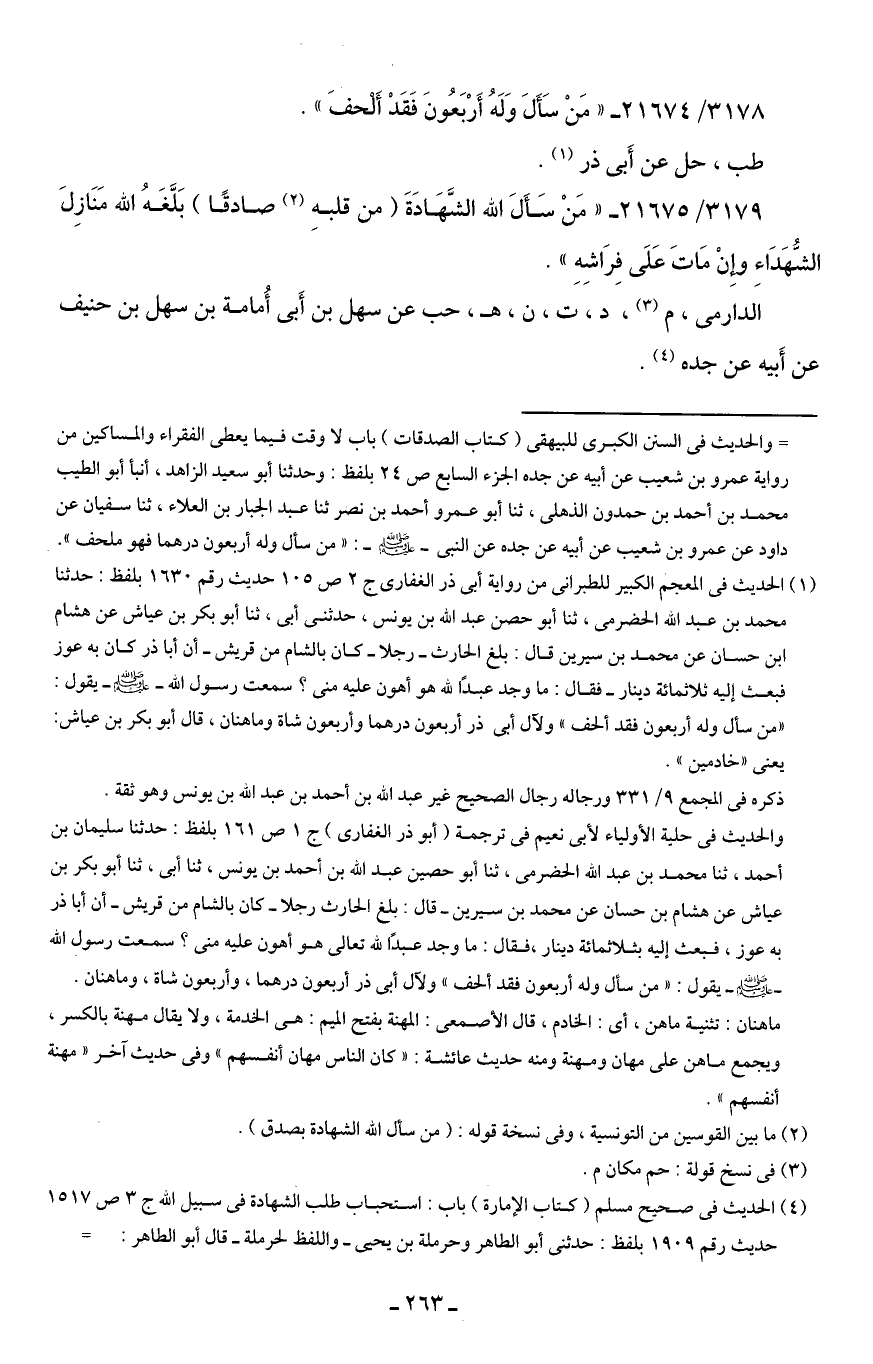 ٣١٧٨/ ٢١٦٧٤ـ « مَنْ سَأَلَ وَلَهُ أَرْبَعُونَ فَقَدْ أَلْحفَ » .
طب ، حل عن أَبى ذر (١) .
٣١٧٩/ ٢١٦٧٥ـ « مَنْ سَـأَلَ الله الشَّهَـادَةَ ( من قلبـهِ (٢) صـادقًـا ) بَلَّغَـهُ الله مَنَازِلَ
الشُّهَدَاءِ وإِنْ مَاتَ عَلَى فِرَاشِهِ » .
الدارمى ، م (٣) ، د ، ت ، ن ، هـ ، حب عن سهل بن أَبى أُمامـة بن سهل بن حنيف
عن أَبيه عن جده (٤) .
= والحديث فى السنن الكبـرى للبيهقى ( كـتاب الصدقات ) باب لا وقت فـيما يعطى الفقراء والمـساكين من
رواية عمرو بن شعيب عن أبيه عن جده الجزء السابع ص ٢٤ بلفظ : وحدثنا أبو سعيد الزاهد ، أنبأ أبو الطيب
محمـد بن أحمد بن حمدون الذهلى ، ثنا أبو عـمرو أحمد بن نصر ثنا عبـد الجبار بن العلاء ، ثنا سـفيان عن
داود عن عمرو بن شعيب عن أبيه عن جده عن النبى ـ ﷺ ـ : « من سأل وله أربعون درهما فهو ملحف ».
(١) الحديث فى المعجم الكبير للطبرانى من رواية أبى ذر الغفارى ج ٢ ص ١٠٥ حديث رقم ١٦٣٠ بلفظ : حدثنا
محمد بن عـبد الله الحضرمى ، ثنا أبو حصن عبد الله بن يونس ، حدثنـى أبى ، ثنا أبو بكر بن عياش عن هشام
ابن حسـان عن محمـد بن سيرين قـال : بلغ الحارث ـ رجلا ـ كـان بالشام من قريش ـ أن أبا ذر كـان به عوز
فبعث إليه ثلاثمائة دينار ـ فقـال : ما وجد عبـدًا لله هو أهون عليه منى ؟ سمعت رسول الله ـ ﷺ ـ يقول :
«من سأل وله أربعون فقد ألحف » ولآل أبى ذر أربعون درهما وأربعون شاة وماهنان ، قال أبو بكر بن عياش:
يعنى «خادمين » .
ذكره فى المجمع ٩/ ٣٣١ ورجاله رجال الصحيح غير عبد الله بن أحمد بن عبد الله بن يونس وهو ثقة .
والحديث فى حلية الأولياء لأبى نعيم فى ترجمـة ( أبو ذر الغفارى ) ج ١ ص ١٦١ بلفظ : حدثنا سليمان بن
أحمد ، ثنا محمـد بن عبد الله الحضرمى ، ثنا أبو حصين عبـد الله بن أحمد بن يونس ، ثنا أبى ، ثنا أبو بكر بن
عياش عن هشام بن حسان عن محمد بن سـيرين ـ قال : بلغ الحارث رجلا ـ كان بالشام من قريش ـ أن أبا ذر
به عوز ، فـبعث إليه بثـلاثمائة دينار ،فـقال : ما وجد عـبدًا لله تعالى هـو أهون عليه منى ؟ سـمعت رسول الله
ـ ﷺ ـ يقول : « من سأل وله أربعون فقد ألحف » ولآل أبى ذر أربعون درهما ، وأربعون شاة ، وماهنان .
ماهنان : تثنيـة ماهن ، أى : الخادم ، قال الأصـمعى : المهنة بفتح الميم : هـى الخدمة ، ولا يقال مـهنة بالكسر ،
ويجمع مـاهن على مهان ومـهنة ومنه حديث عائشـة : « كان الناس مهان أنفـسهم » وفى حديث آخـر « مهنة
أنفسهم » .
(٢) ما بين القوسين من التونسية ، وفى نسخة قوله : ( من سأل الله الشهادة بصدق ) .
(٣) فى نسخ قولة : حم مكان م .
(٤) الحديث فى صـحيح مسلم ( كـتاب الإمارة ) باب : اسـتحبـاب طلب الشهادة فى سـبيل الله ج ٣ ص ١٥١٧
حديث رقم ١٩٠٩ بلفظ : حدثنى أبو الطاهر وحرملة بن يحيى ـ واللفظ لحرملة ـ قال أبو الطاهر : =
ـ ٢٦٣ ـ